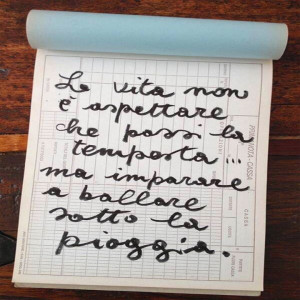 La vita non
è aspettare
che passi la
temposta...
ma imparare
a ballare
sotto la
pioggia.
PRIMA NOTA CASSA